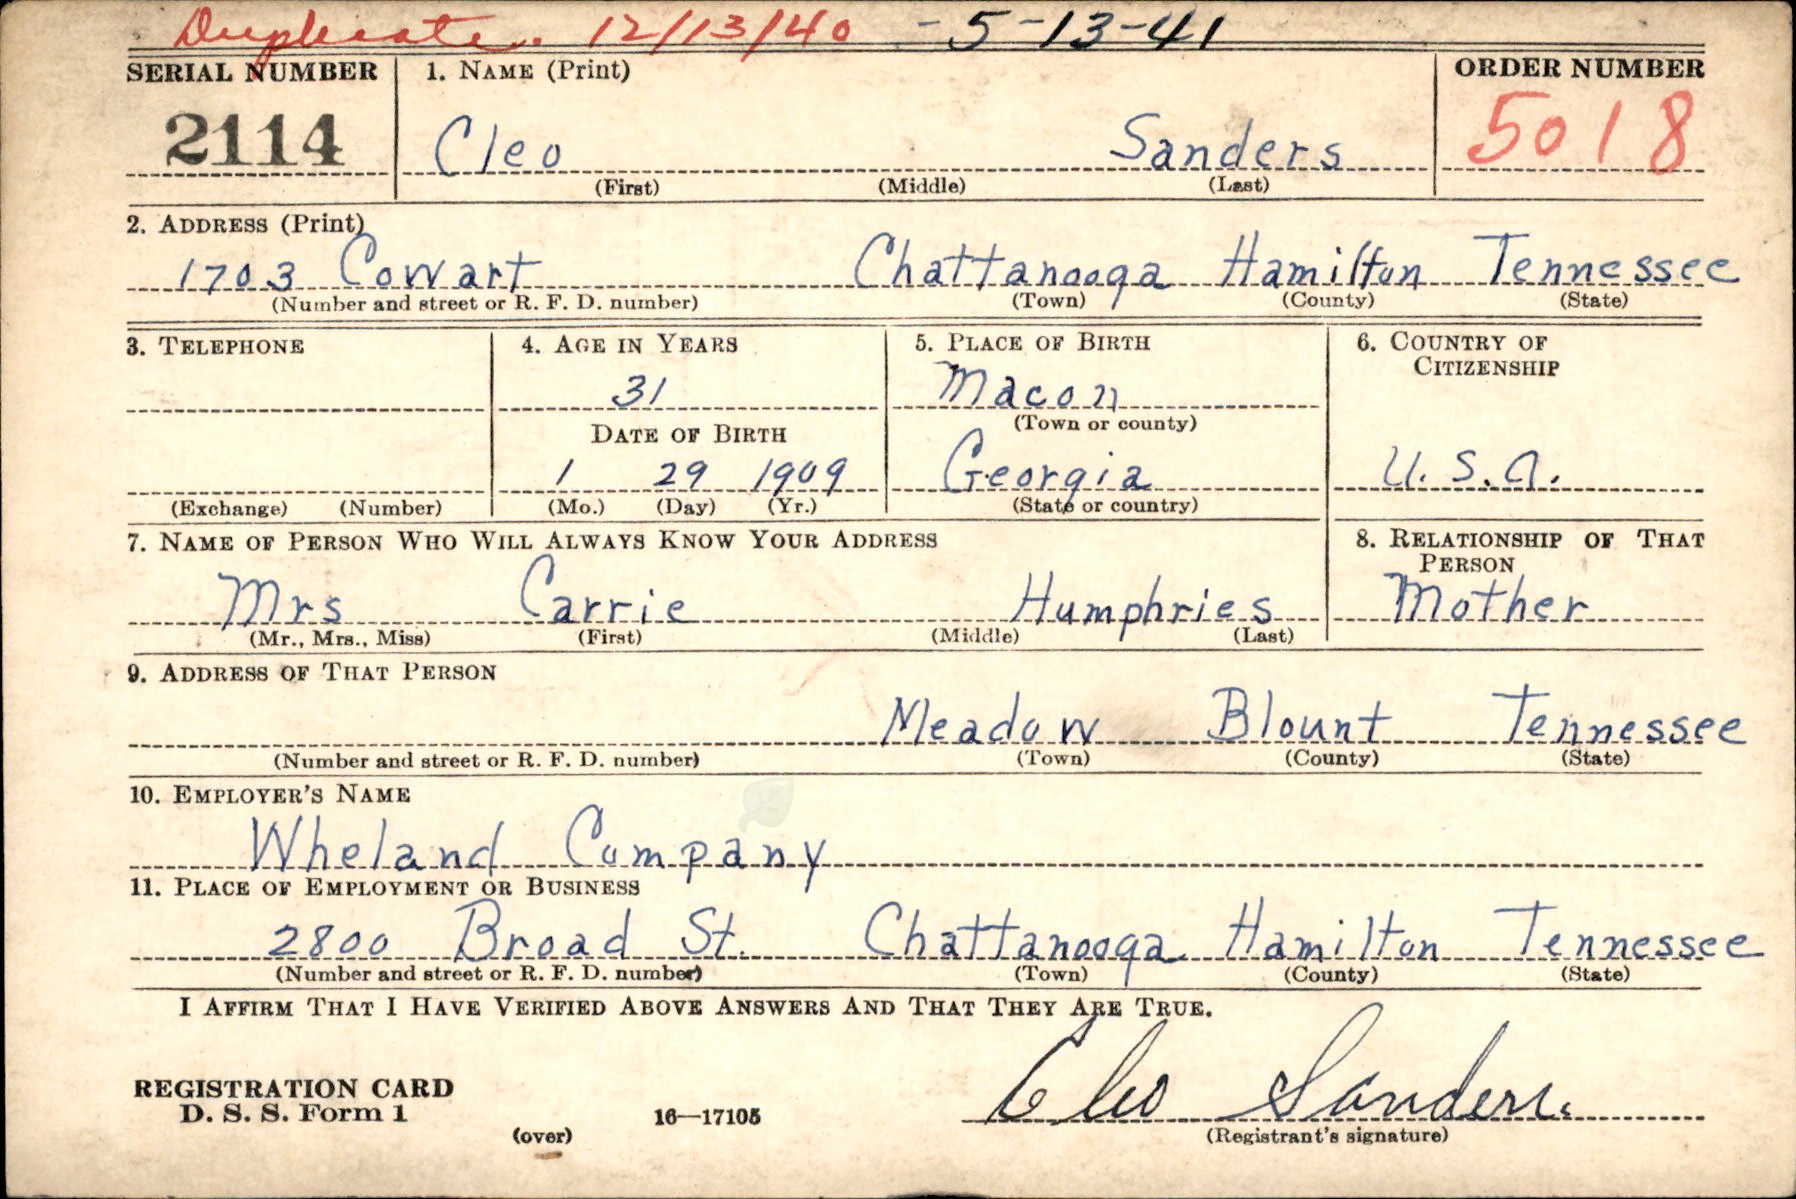 Duplicate. 12/13/40 - 5-13-41
SERIAL NUMBER 1. NAME (Print) ORDER NUMBER
2114 Cleo Sanders 5018
(First) (Middle) (Last)
2. ADDRESS (Print)
1703 Cowart Chattanooga Hamilton Tennessee
(Number and street or R. F. D. number) (Town) (County) (State)
3. TELEPHONE 4. AGE IN YEARS 5. PLACE OF BIRTH 6. COUNTRY OF
CITIZENSHIP
31 Macon
(Town or county)
DATE OF BIRTH
1 29 1909 Georgia U. S. A.
(Exchange) (Number) (Mo.) (Day) (Yr.) (State or country)
7. NAME OF PERSON WHO WILL ALWAYS KNOW YOUR ADDRESS 8. RELATIONSHIP OF THAT
PERSON
Mrs Carrie Humphries Mother
(Mr., Mrs., Miss) (First) (Middle) (Last)
9. ADDRESS OF THAT PERSON
Meadow Blount Tennessee
(Number and street or R. F. D. number) (Town) (County) (State)
10. EMPLOYER'S NAME
Wheland Company
11. PLACE OF EMPLOYMENT OR BUSINESS
2800 Broad St. Chattanooga Hamilton Tennessee
(Number and street or R. F. D. number) (Town) (County) (State)
I AFFIRM THAT I HAVE VERIFIED ABOVE ANSWERS AND THAT THEY ARE TRUE.
REGISTRATION CARD
D. S. S. Form 1 16—17105 Cleo Sanders.
(over) (Registrant's signature)